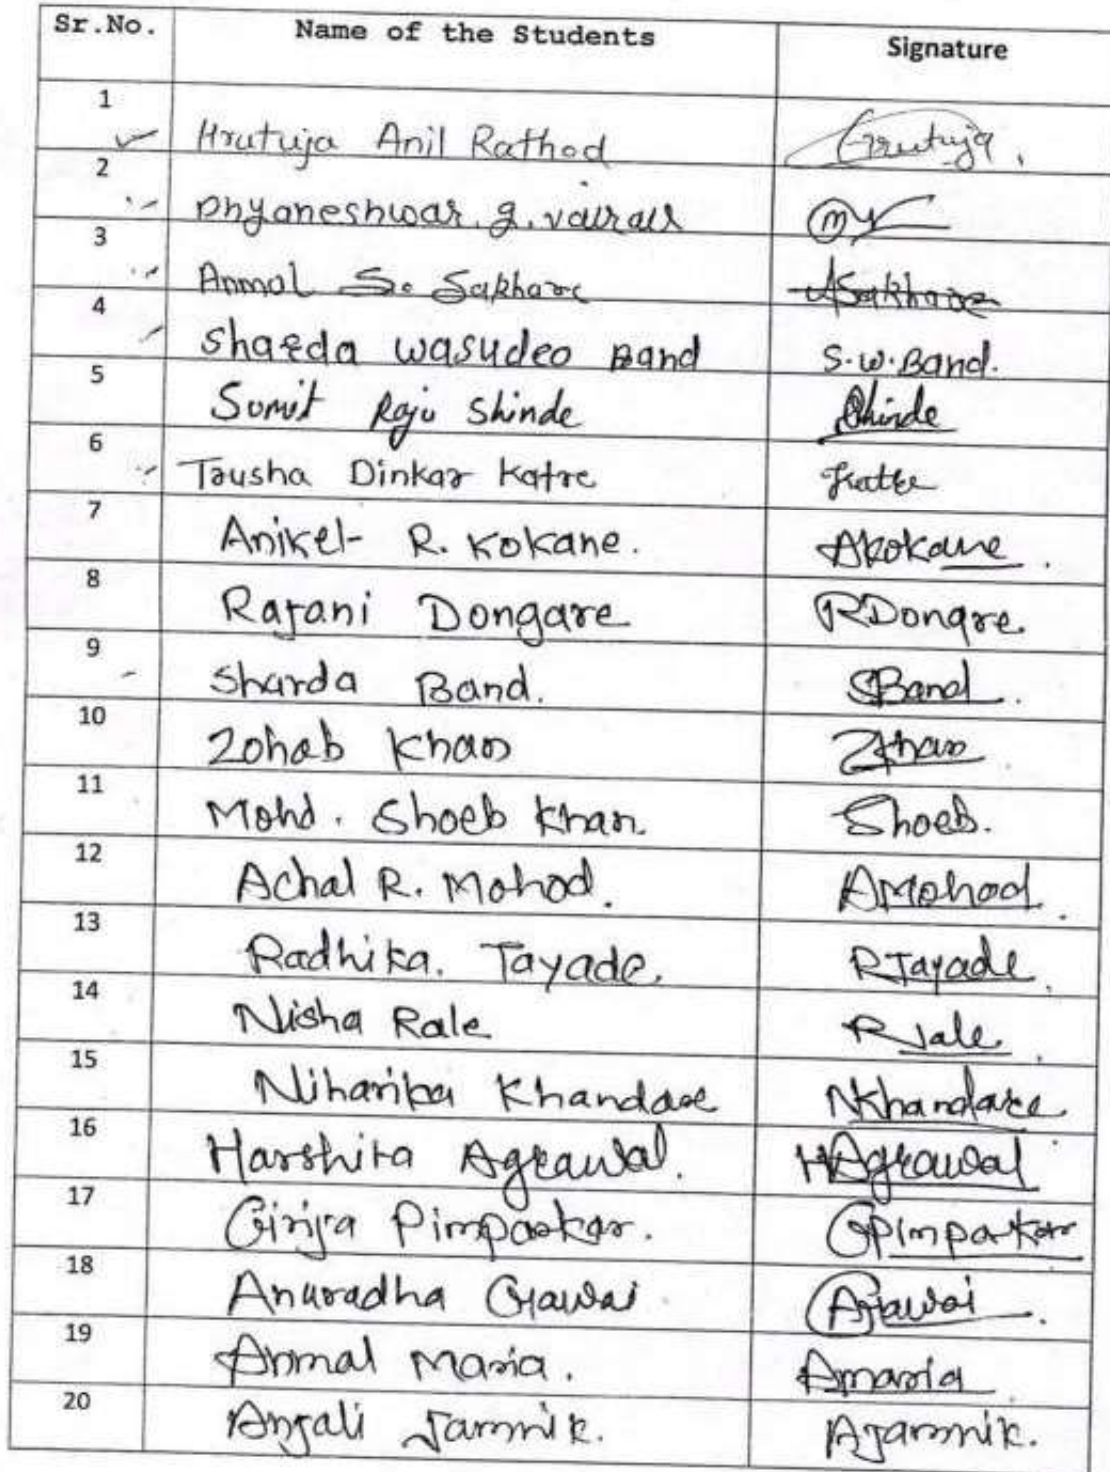 Sr.No. Name of the Students Signature
1 Hrutuja Anil Rathod Hrutuja.
2 Dhyaneshwar. g.
3 Anmol S. Sakhare ASakhare
4 Sharda wasudeo Band S.W.Band.
5 Sumit Raju Shinde Shinde
6 Trusha Dinkar Katre Katre
7 Aniket R. Kokane. AKokane.
8 Rajani Dongare RDongre.
9 Sharda Band. SBand.
10 Zohab Khan ZKhan
11 Mohd. Shoeb Khan. Shoeb.
12 Achal R. Mohod. AMohod.
13 Radhika. Tayade. RTayade.
14 Nisha Rale
15 Niharika Khandare NKhandare
16 Harshita Agrawal. HAgrawal
17 Girija Pimparkar. GPimparkar
18 Anuradha Gawai AGawai.
19 Anmal Maria. Amaria
20 Anjali Jamnik. AJamnik.